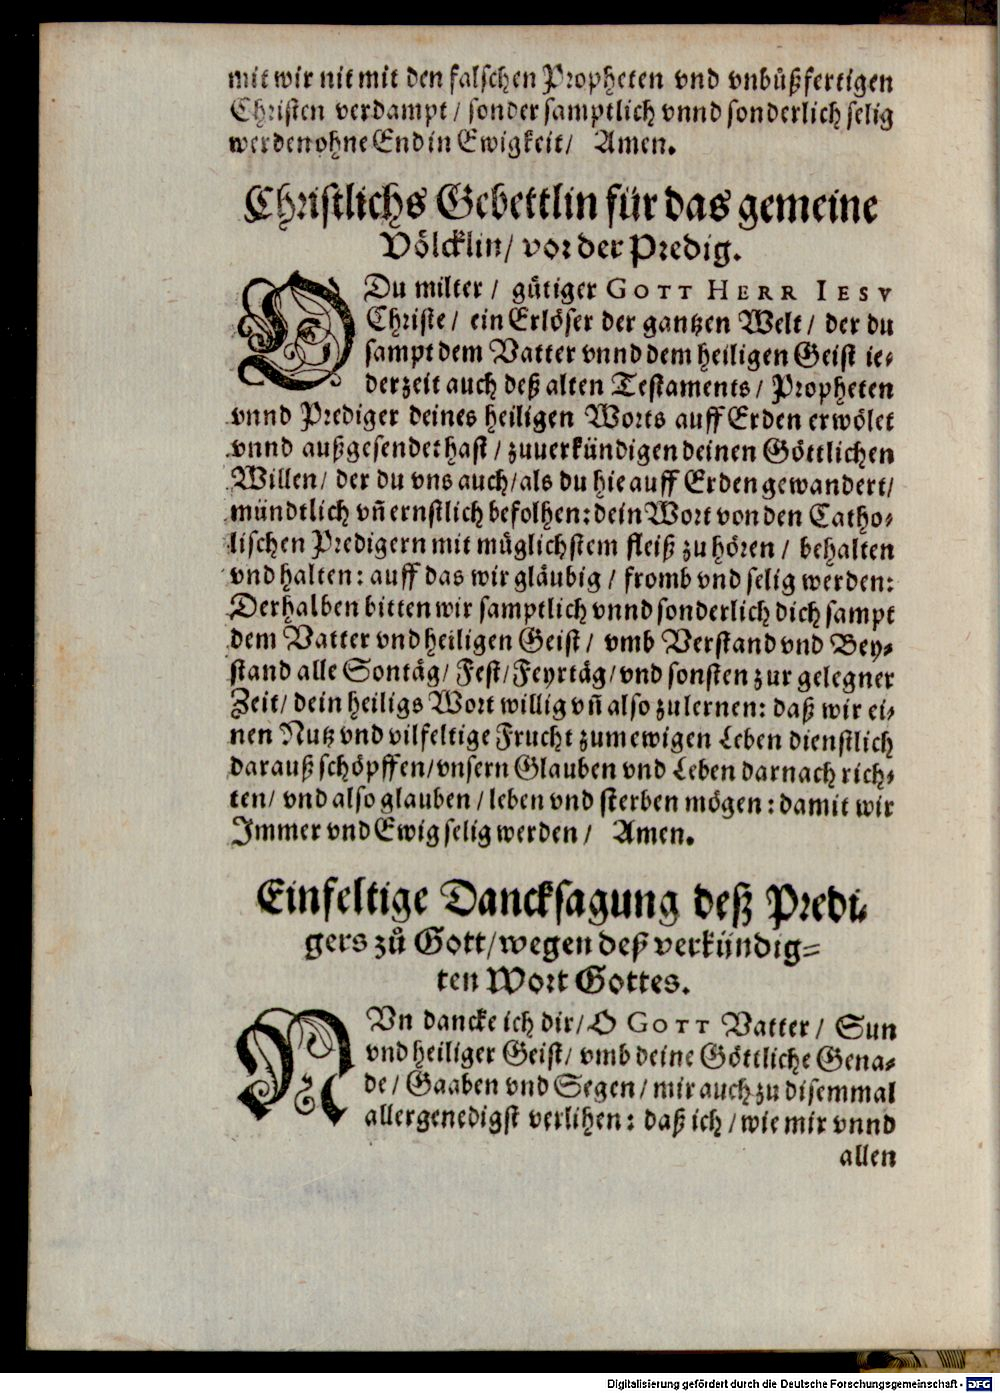 mit wir nit mit den falschen Propheten vnd vnbůßfertigen
Christen verdampt / sonder samptlich vnnd sonderlich selig
werden ohne End in Ewigkeit / Amen.
Christlichs Gebettlin für das gemeine
Völcklin / vor der Predig.
O Du milter / gütiger GOTT HERR IESV
Christe / ein Erlöser der gantzen Welt / der du
sampt dem Vatter vnnd dem heiligen Geist ie-
derzeit auch deß alten Testaments / Propheten
vnnd Prediger deines heiligen Worts auff Erden erwölet
vnnd außgesendet hast / zuuerkündigen deinen Göttlichen
Willen / der du vns auch / als du hie auff Erden gewandert /
mündtlich vñ ernstlich befolhen: dein Wort von den Catho-
lischen Predigern mit müglichstem fleiß zu hören / behalten
vnd halten: auff das wir gläubig / fromb vnd selig werden:
Derhalben bitten wir samptlich vnnd sonderlich dich sampt
dem Vatter vnd heiligen Geist / vmb Verstand vnd Bey-
stand alle Sontäg / Fest / Feyrtäg / vnd sonsten zur gelegner
Zeit / dein heiligs Wort willig vñ also zulernen: daß wir ei-
nen Nutz vnd vilfeltige Frucht zum ewigen Leben dienstlich
darauß schöpffen / vnsern Glauben vnd Leben darnach rich-
ten / vnd also glauben / leben vnd sterben mögen: damit wir
Jmmer vnd Ewig selig werden / Amen.
Einfeltige Dancksagung deß Predi-
gers zů Gott / wegen deß verkündig-
ten Wort Gottes.
NVn dancke ich dir / O GOTT Vatter / Sun
vnd heiliger Geist / vmb deine Göttliche Gena-
de / Gaaben vnd Segen / mir auch zu disemmal
allergenedigst verlihen: daß ich / wie mir vnnd
allen
Digitalisierung gefördert durch die Deutsche Forschungsgemeinschaft - DFG